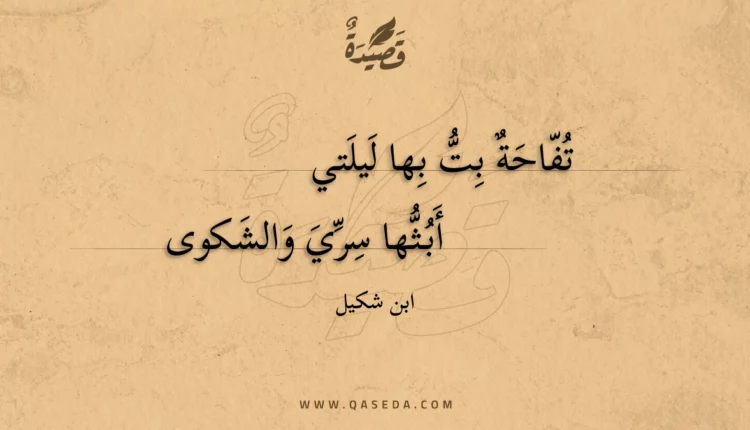 قَصِيدَةٌ
تُفّاحَةٌ بِتُّ بِها لَيلَتي
أَبُثُّها سِرِّيَ وَالشَكوى
ابن شكيل
WWW.QASEDA.COM